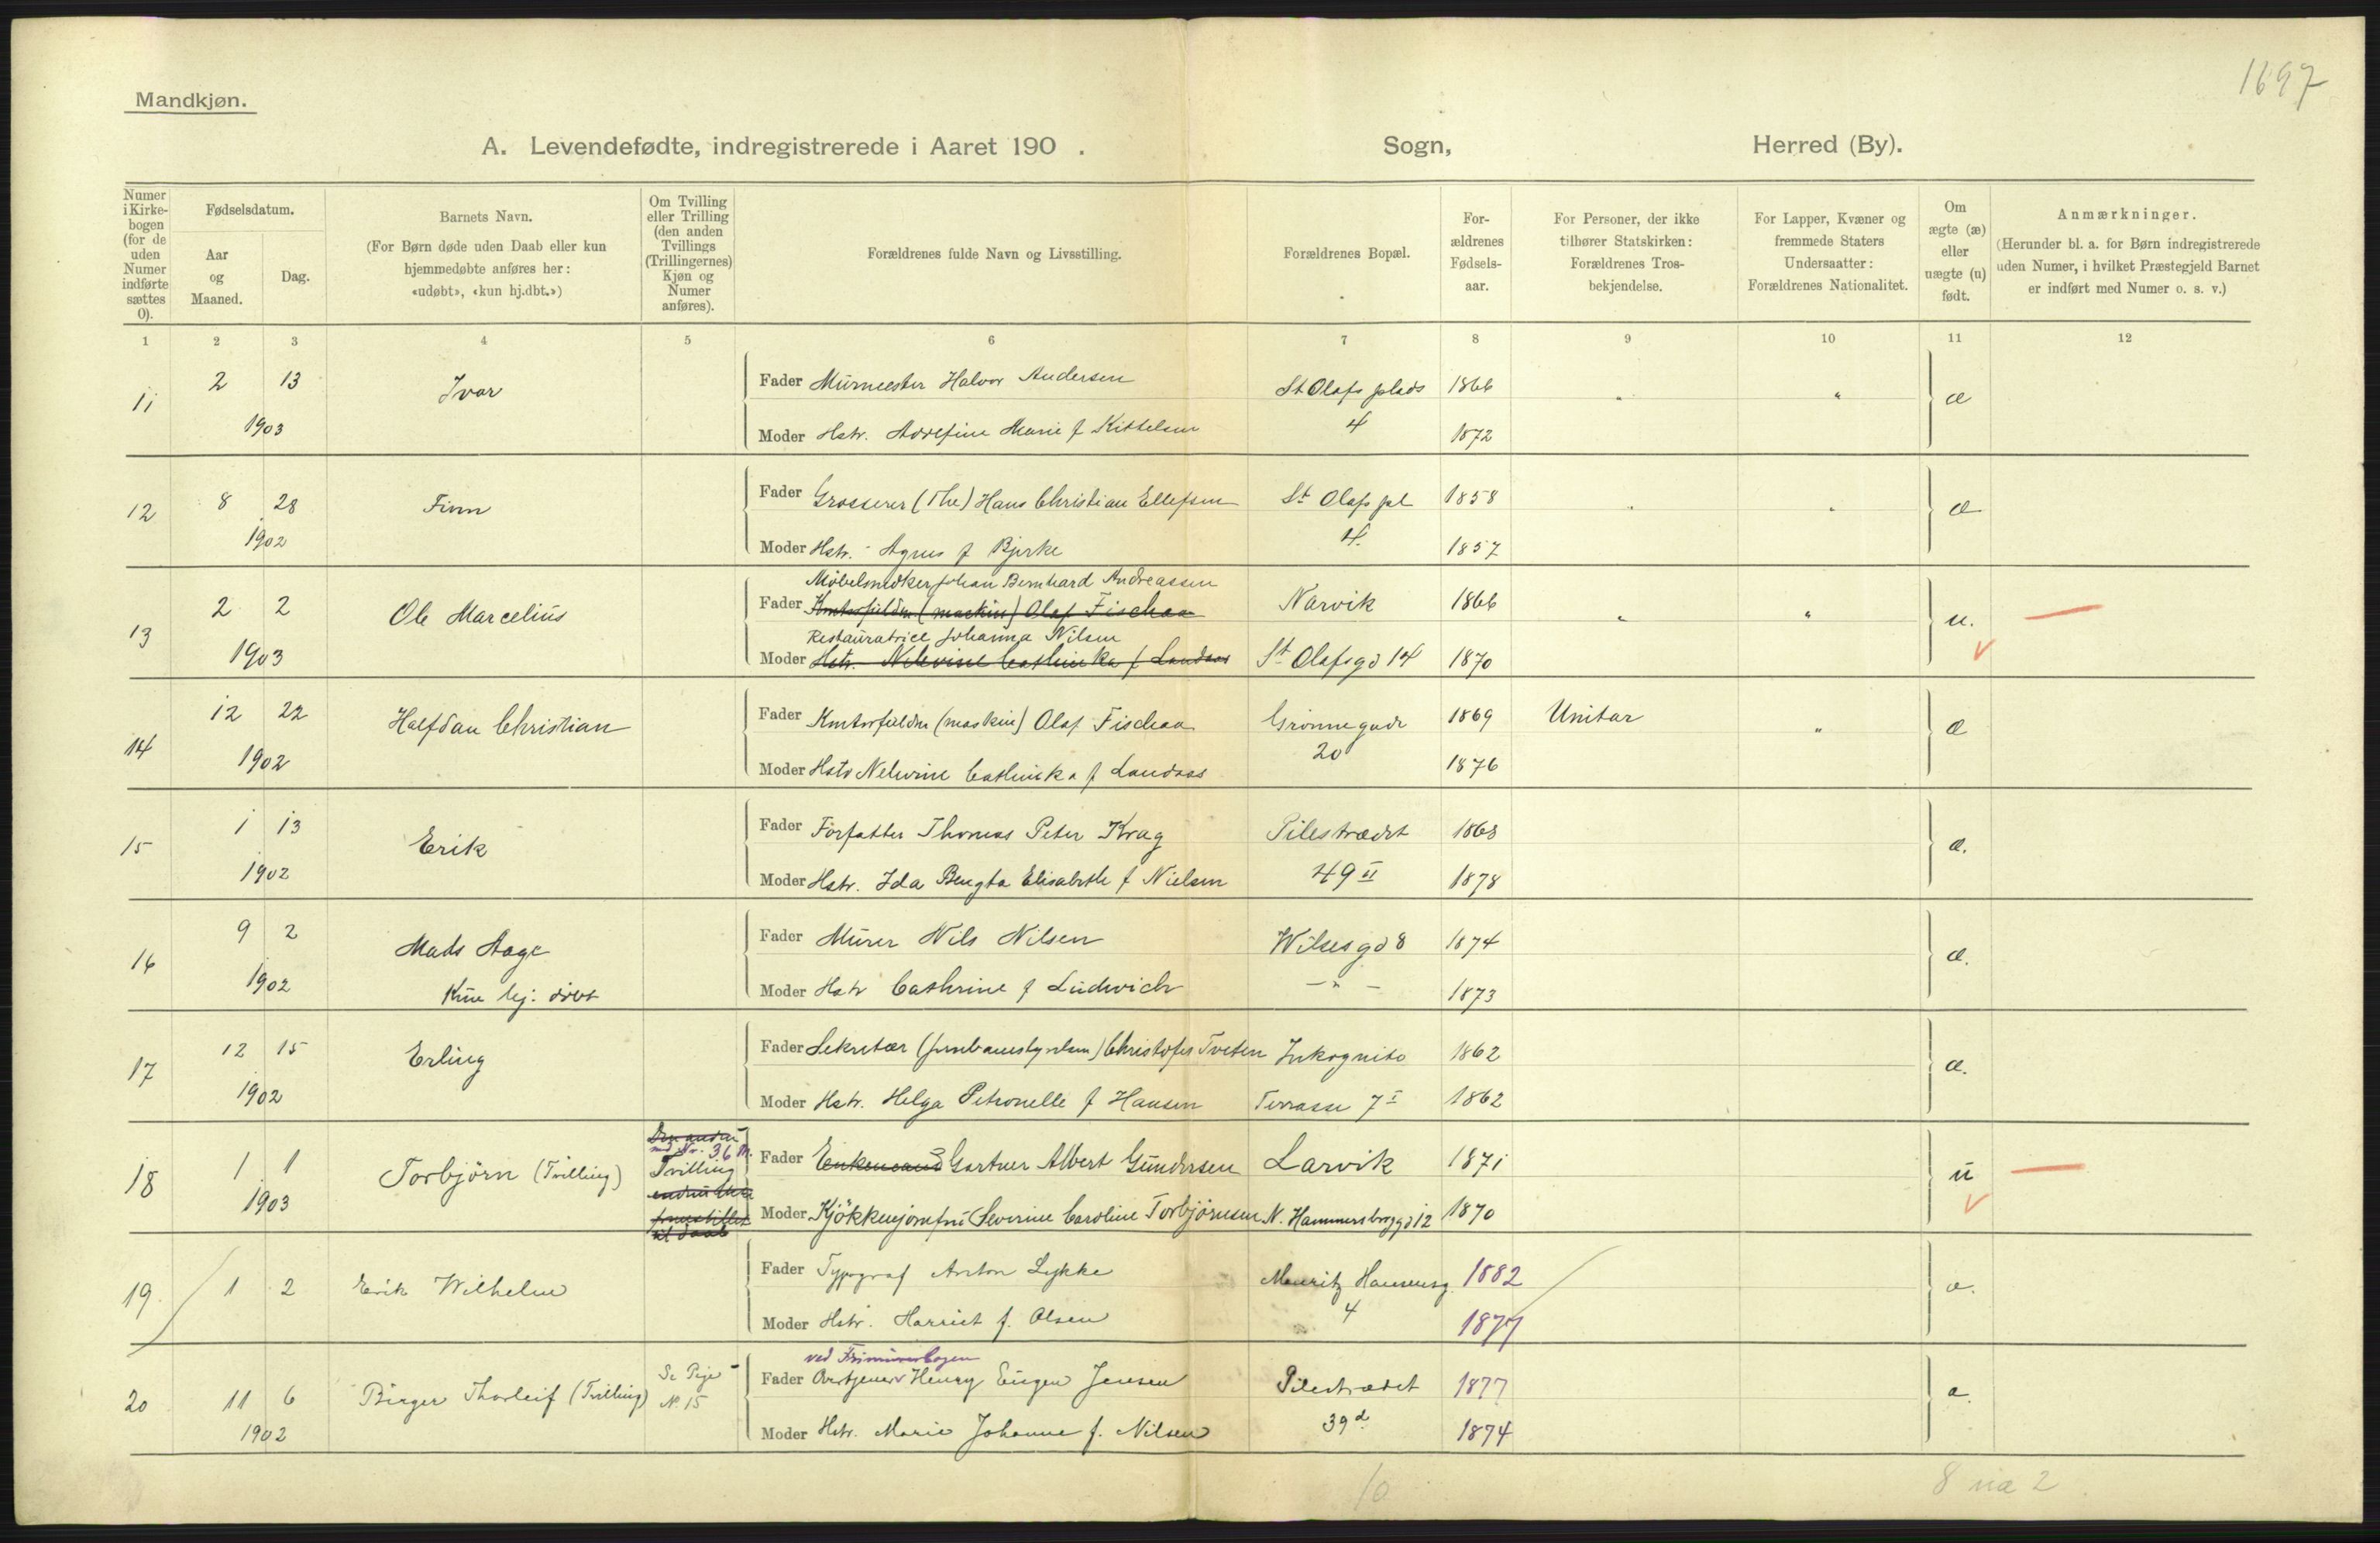 1697
Mandkjøn.
A. Levendefødte, indregistrerede i Aaret 190 . Sogn, Herred (By).
Numer i Kirkebogen (for de uden Numer indførte sættes 0).
Fødselsdatum.
Aar og Maaned.
Dag.
Barnets Navn.
(For Børn døde uden Daab eller kun hjemmedøbte anføres her: «udøbt», «kun hj.dbt.»)
Om Tvilling eller Trilling (den anden Tvillings (Trillingernes) Kjøn og Numer anføres).
Forældrenes fulde Navn og Livsstilling.
Forældrenes Bopæl.
Forældrenes Fødselsaar.
For Personer, der ikke tilhører Statskirken: Forældrenes Trosbekjendelse.
For Lapper, Kvæner og fremmede Staters Undersaatter: Forældrenes Nationalitet.
Om ægte (æ) eller uægte (u) født.
Anmærkninger.
(Herunder bl. a. for Børn indregistrerede uden Numer, i hvilket Præstegjeld Barnet er indført med Numer o. s. v.)
1 2 3 4 5 6 7 8 9 10 11 12
11 2 13 Ivar Fader Murmester Halvor Andersen St Olafs plads 1866 " " æ
1903 Moder Hstr. Adolfine Marie f Kittelsen 4 1872
12 8 28 Finn Fader Grosserer (The) Hans Christian Ellefsen St Olafs pl 1858 " " æ
1902 Moder Hstr. Agnes f Bjerke 4. 1857
Møbelsnedker Johan Bernhard Andreassen
13 2 2 Ole Marcelius Fader Kontorfuldm (maskin) Olaf Fischaa Narvik 1866 " " u.
Restauratrice Johanna Nilsen
1903 Moder Hstr. Nelevine Cathinka f Landaas St Olafsgd 14 1870
14 12 22 Halfdan Christian Fader Kontorfuldm (maskin) Olaf Fischaa Grønnegade 1869 Unitar " æ
1902 Moder Hstr Nelevine Cathinka f Landaas 20 1876
15 1 13 Erik Fader Forfatter Thomas Peter Krag Pilestrædet 1868 æ.
1902 Moder Hstr. Ida Bengta Elisabeth f Nielsen 49 II 1878
16 9 2 Mads Aage Fader Murer Nils Nilsen Wilsesgd 8 1874 æ.
1902 Kun hj: døbt Moder Hstr Cathrine f Ludwich — " — 1873
17 12 15 Erling Fader Sekretær (Jernbanestyrelsen) Christofer Tveten Inkognito 1862 æ.
1902 Moder Hstr. Helga Petronelle f Hansen Terrasse 7 I 1862
Den anden
med Nr. 36 M.
18 1 1 Torbjörn (Tvilling) Tvilling Fader Enkemand Gartner Albert Gundersen Larvik 1871 u
1903 Moder Kjökkenjomfru Severine Caroline Torbjörnsen N. Hammersborggd 12 1870
19 1 2 Erik Wilhelm Fader Typograf Anton Lykke Mauritz Hansensg. 1882 æ.
Moder Hstr. Harriet f. Olsen 4 1877
ved Frimurerlogen
20 11 6 Birger Thorleif (Tvilling) Se Pige N. 15 Fader Overtjener Henry Eugen Jensen Pilestrædet 1877 æ.
1902 Moder Hstr. Marie Johanne f. Nilsen 39 d. 1874
10 8 uæ 2